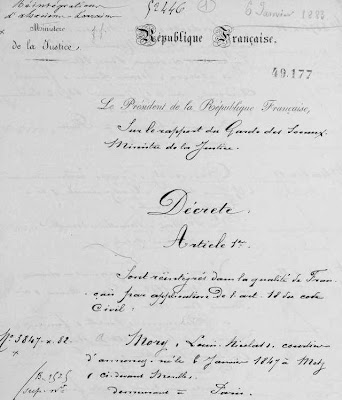 Réintégration
d'alsaciens-lorrains
52446
6 Janvier 188
Ministère
de la Justice.
République Française.
49.177
Le Président de la République Française,
Sur le rapport du Garde des Sceaux
Ministre de la Justice.
Décrète
Article 1er
Sont réintégrés dans la qualité de Fran-
çais par application de l'art. 18 du code
Civil :
No 3847-x.82.
Mory, Louis Nicolas, courtier
d'annonces, né le 8 Janvier 1847 à Metz
ci-devant Moselle,
demeurant Paris.